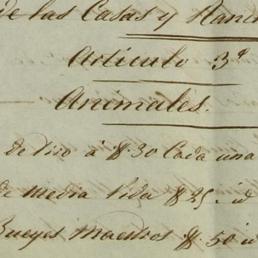 de las Casas y Ranc
Articulo 3º
Animales.
de tiro á $ 30 Cada una
de media Vida $ 25. id
Bueyes Maestros $. 50 id